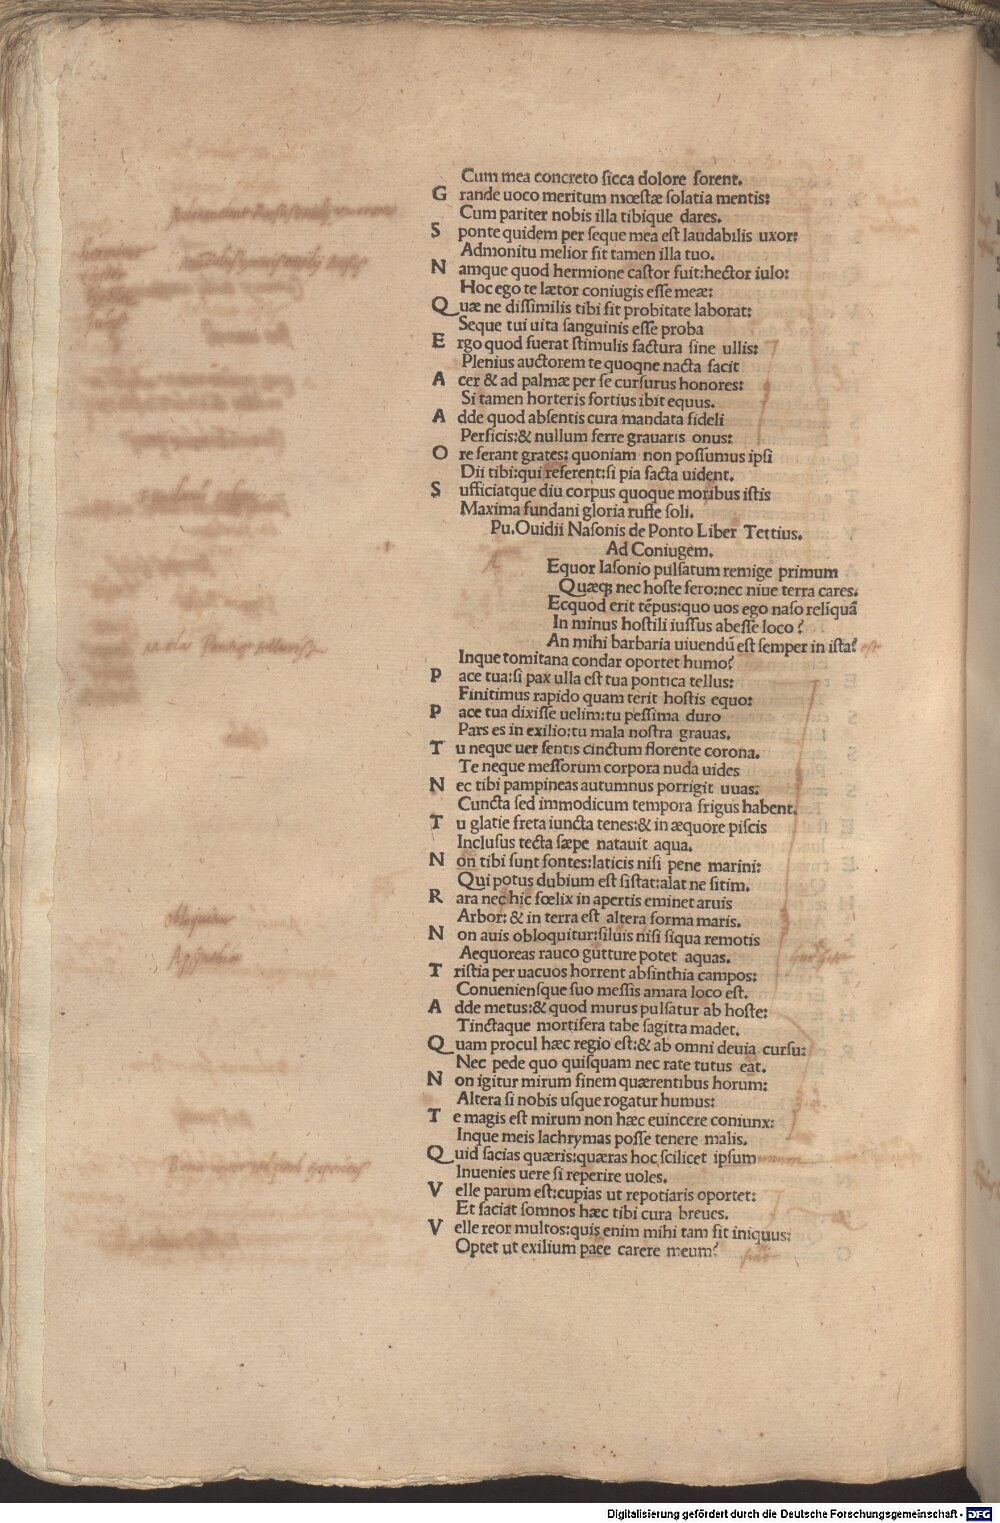 Cum mea concreto sicca dolore forent.
G rande uoco meritum mœstæ solatia mentis:
Cum pariter nobis illa tibique dares.
S ponte quidem per seque mea est laudabilis uxor:
Admonitu melior fit tamen illa tuo.
N amque quod hermione castor fuit:hector iulo:
Hoc ego te lætor coniugis esse meæ:
Q uæ ne dissimilis tibi sit probitate laborat:
Seque tui uita sanguinis esse proba
E rgo quod fuerat stimulis factura sine ullis:
Plenius auctorem te quoqne nacta facit
A cer & ad palmæ per se cursurus honores:
Si tamen horteris fortius ibit equus.
A dde quod absentis cura mandata fideli
Perficis:& nullum ferre grauaris onus:
O re ferant grates: quoniam non possumus ipsi
Dii tibi:qui referent:si pia facta uident.
S ufficiatque diu corpus quoque moribus istis
Maxima fundani gloria ruffe soli.
Pu.Ouidii Nasonis de Ponto Liber Tertius.
Ad Coniugem.
Equor Iasonio pulsatum remige primum
Quæq; nec hoste fero:nec niue terra cares.
Ecquod erit tēpus:quo uos ego naso relīquā
In minus hostili iussus abesse loco?
An mihi barbaria uiuendū est semper in ista?
Inque tomitana condar oportet humo?
P ace tua:si pax ulla est tua pontica tellus:
Finitimus rapido quam terit hostis equo:
P ace tua dixisse uelim:tu pessima duro
Pars es in exilio:tu mala nostra grauas.
T u neque uer sentis cinctum florente corona.
Te neque messorum corpora nuda uides
N ec tibi pampineas autumnus porrigit uuas:
Cuncta sed immodicum tempora frigus habent.
T u glatie freta iuncta tenes:& in æquore piscis
Inclusus tecta sæpe natauit aqua.
N on tibi sunt fontes:laticis nisi pene marini:
Qui potus dubium est sistat:alat ne sitim.
R ara nec hic fœlix in apertis eminet aruis
Arbor: & in terra est altera forma maris.
N on auis obloquitur:siluis nisi siqua remotis
Aequoreas rauco gutture potet aquas.
T ristia per uacuos horrent absinthia campos:
Conueniensque suo messis amara loco est.
A dde metus:& quod murus pulsatur ab hoste:
Tinctaque mortifera tabe sagitta madet.
Q uam procul hæc regio est:& ab omni deuia cursu:
Nec pede quo quisquam nec rate tutus eat.
N on igitur mirum finem quærentibus horum:
Altera si nobis usque rogatur humus:
T e magis est mirum non hæc euincere coniunx:
Inque meis lachrymas posse tenere malis.
Q uid facias quæris:quæras hoc scilicet ipsum
Inuenies uere si reperire uoles.
V elle parum est:cupias ut repotiaris oportet:
Et faciat somnos hæc tibi cura breues.
V elle reor multos:quis enim mihi tam sit iniquus:
Optet ut exilium pace carere meum?
obloquitur
Digitalisierung gefördert durch die Deutsche Forschungsgemeinschaft - DFG